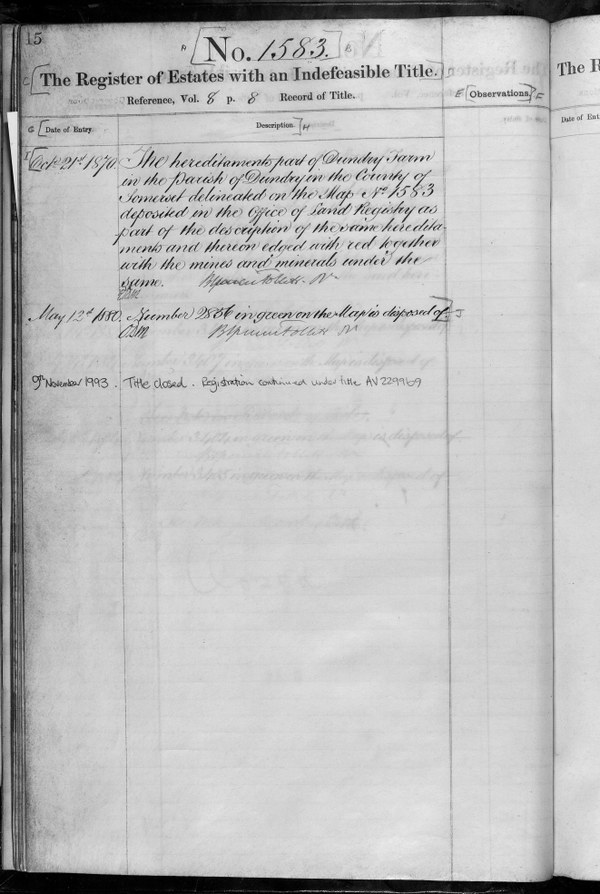 15
A No. 1583. B
C The Register of Estates with an Indefeasible Title.
The R
Reference, Vol. 8 p. 8 Record of Title.
E Observations. F
G Date of Entry.
Description. H
Date of Ent
I Oct. 21st 1870.
The hereditaments part of Dundry Farm
in the Parish of Dundry in the County of
Somerset delineated on the Map No. 1583
deposited in the Office of Land Registry as
part of the description of the same heredita-
ments and thereon edged with red together
with the mines and minerals under the
same.
May 12th 1880.
Number 2886 in green on the Map is disposed of J
9th November 1993. Title closed. Registration continued under title AV 229969